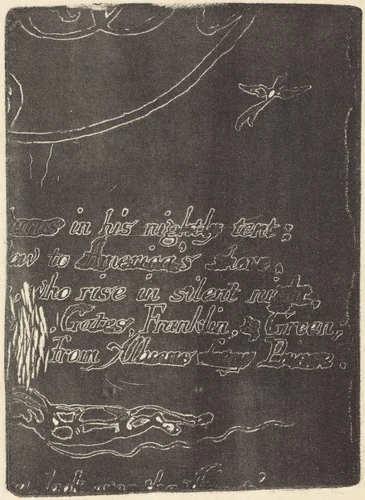 in his nightly tent:
to America's shore:
who rise in silent night,
Gates, Franklin, & Green,
from Albions Prince.